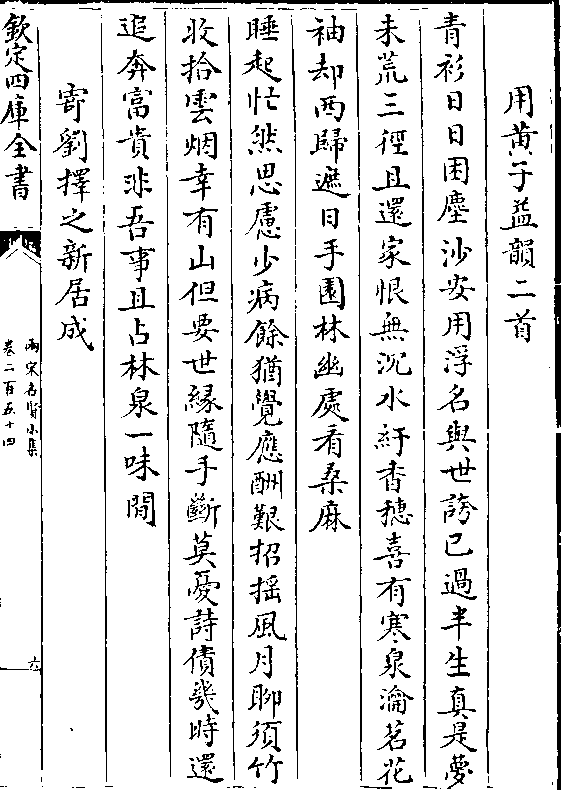 用黄子益韻二首
青衫日日困塵沙安用浮名與世誇已過半生真是夢
未荒三徑且還家恨無沉水紆香穗喜有寒泉瀹茗花
袖却西歸遮日手園林幽處看桑麻
睡起忙然思慮少病餘猶覺應酬艱招揺風月聊須竹
收拾雲烟幸有山但要世緣隨手斷莫憂詩債幾時還
追奔富貴非吾事且占林泉一味閒
寄劉擇之新居成
欽定四庫全書
兩宋名賢小集
卷二百五十四
六